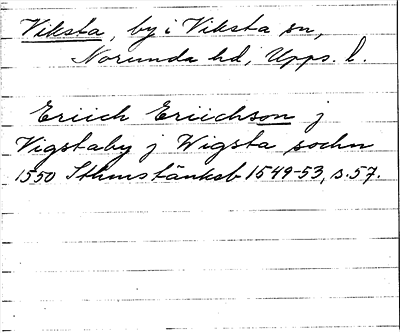 Viksta, by i Viksta sn,
Norunda hd, Upps. l.
Eriich Eriichson j
Vigstaby j Wigsta sochn
1550 Sthmstänkeb 1549-53, s. 57.